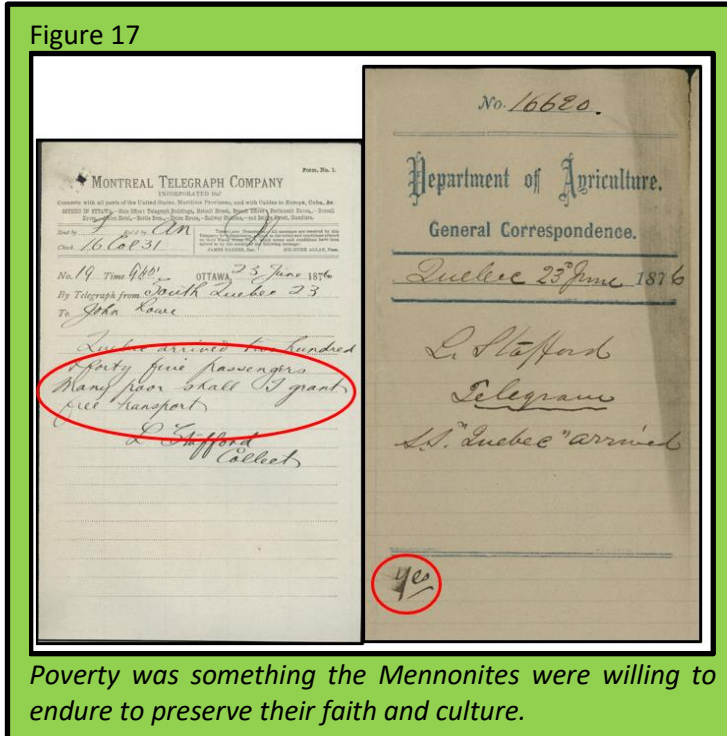 Figure 17
Form. No. 1.
MONTREAL TELEGRAPH COMPANY
INCORPORATED 1847
Connects with all parts of the United States, Maritime Provinces, and with Cables to Europe, Cuba, &c.
Sent by
Rec'd by
Check 16 Col 31
No. 19 Time 945 OTTAWA 23 June 1876
By Telegraph from South Quebec 23
To John Lowe
Quebec arrived two hundred
& forty five passengers
Many poor shall I grant
free transport
L Stafford
Collect
No. 16620.
Department of Agriculture.
General Correspondence.
Quebec 23d June 1876
L. Stafford
Telegram
S.S. "Quebec" arrived
yes
Poverty was something the Mennonites were willing to
endure to preserve their faith and culture.